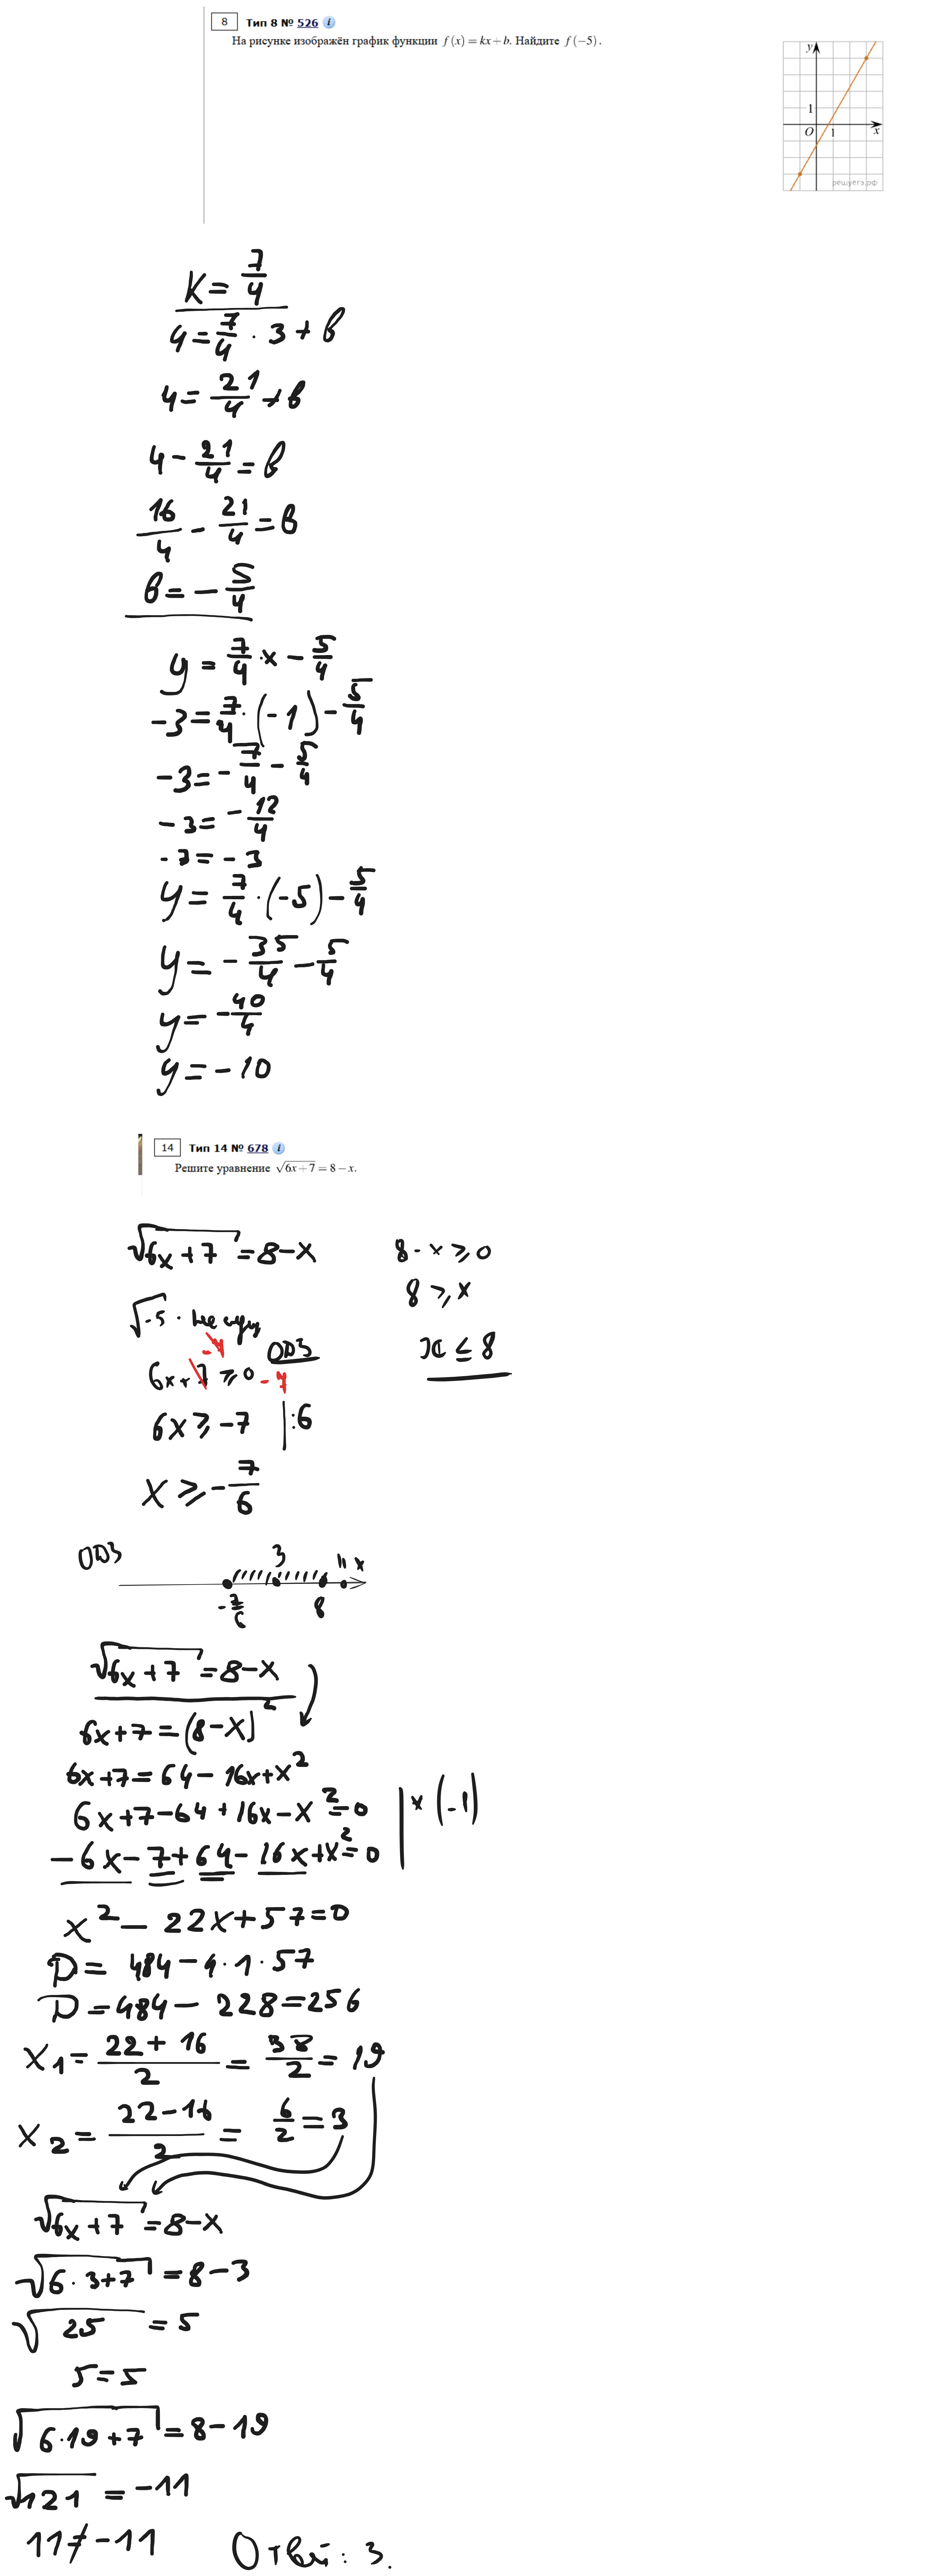 8 Тип 8 № 526 i
На рисунке изображён график функции f(x) = kx + b. Найдите f(−5).
y
1
O 1 x
решуегэ.рф
K = 7/4
4 = 7/4 · 3 + в
4 = 21/4 + в
4 − 21/4 = в
16/4 − 21/4 = в
в = − 5/4
y = 7/4 · x − 5/4
−3 = 7/4 · (−1) − 5/4
−3 = − 7/4 − 5/4
−3 = − 12/4
−3 = −3
y = 7/4 · (−5) − 5/4
y = − 35/4 − 5/4
y = − 40/4
y = −10
14 Тип 14 № 678 i
Решите уравнение √(6x + 7) = 8 − x.
√(6x + 7) = 8 − x
8 − x ≥ 0
8 ≥ x
x ≤ 8
√−5 · не
ОДЗ
6x + 7 ≥ 0
−7 −7
6x ≥ −7 | :6
x ≥ − 7/6
ОДЗ
3 11 x
− 7/6 8
√(6x + 7) = 8 − x
6x + 7 = (8 − x)²
6x + 7 = 64 − 16x + x²
6x + 7 − 64 + 16x − x² = 0 | × (−1)
−6x − 7 + 64 − 16x + x² = 0
x² − 22x + 57 = 0
D = 484 − 4 · 1 · 57
D = 484 − 228 = 256
x₁ = (22 + 16)/2 = 38/2 = 19
x₂ = (22 − 16)/2 = 6/2 = 3
√(6x + 7) = 8 − x
√(6 · 3 + 7) = 8 − 3
√25 = 5
5 = 5
√(6 · 19 + 7) = 8 − 19
√121 = −11
11 ≠ −11
Ответ: 3.